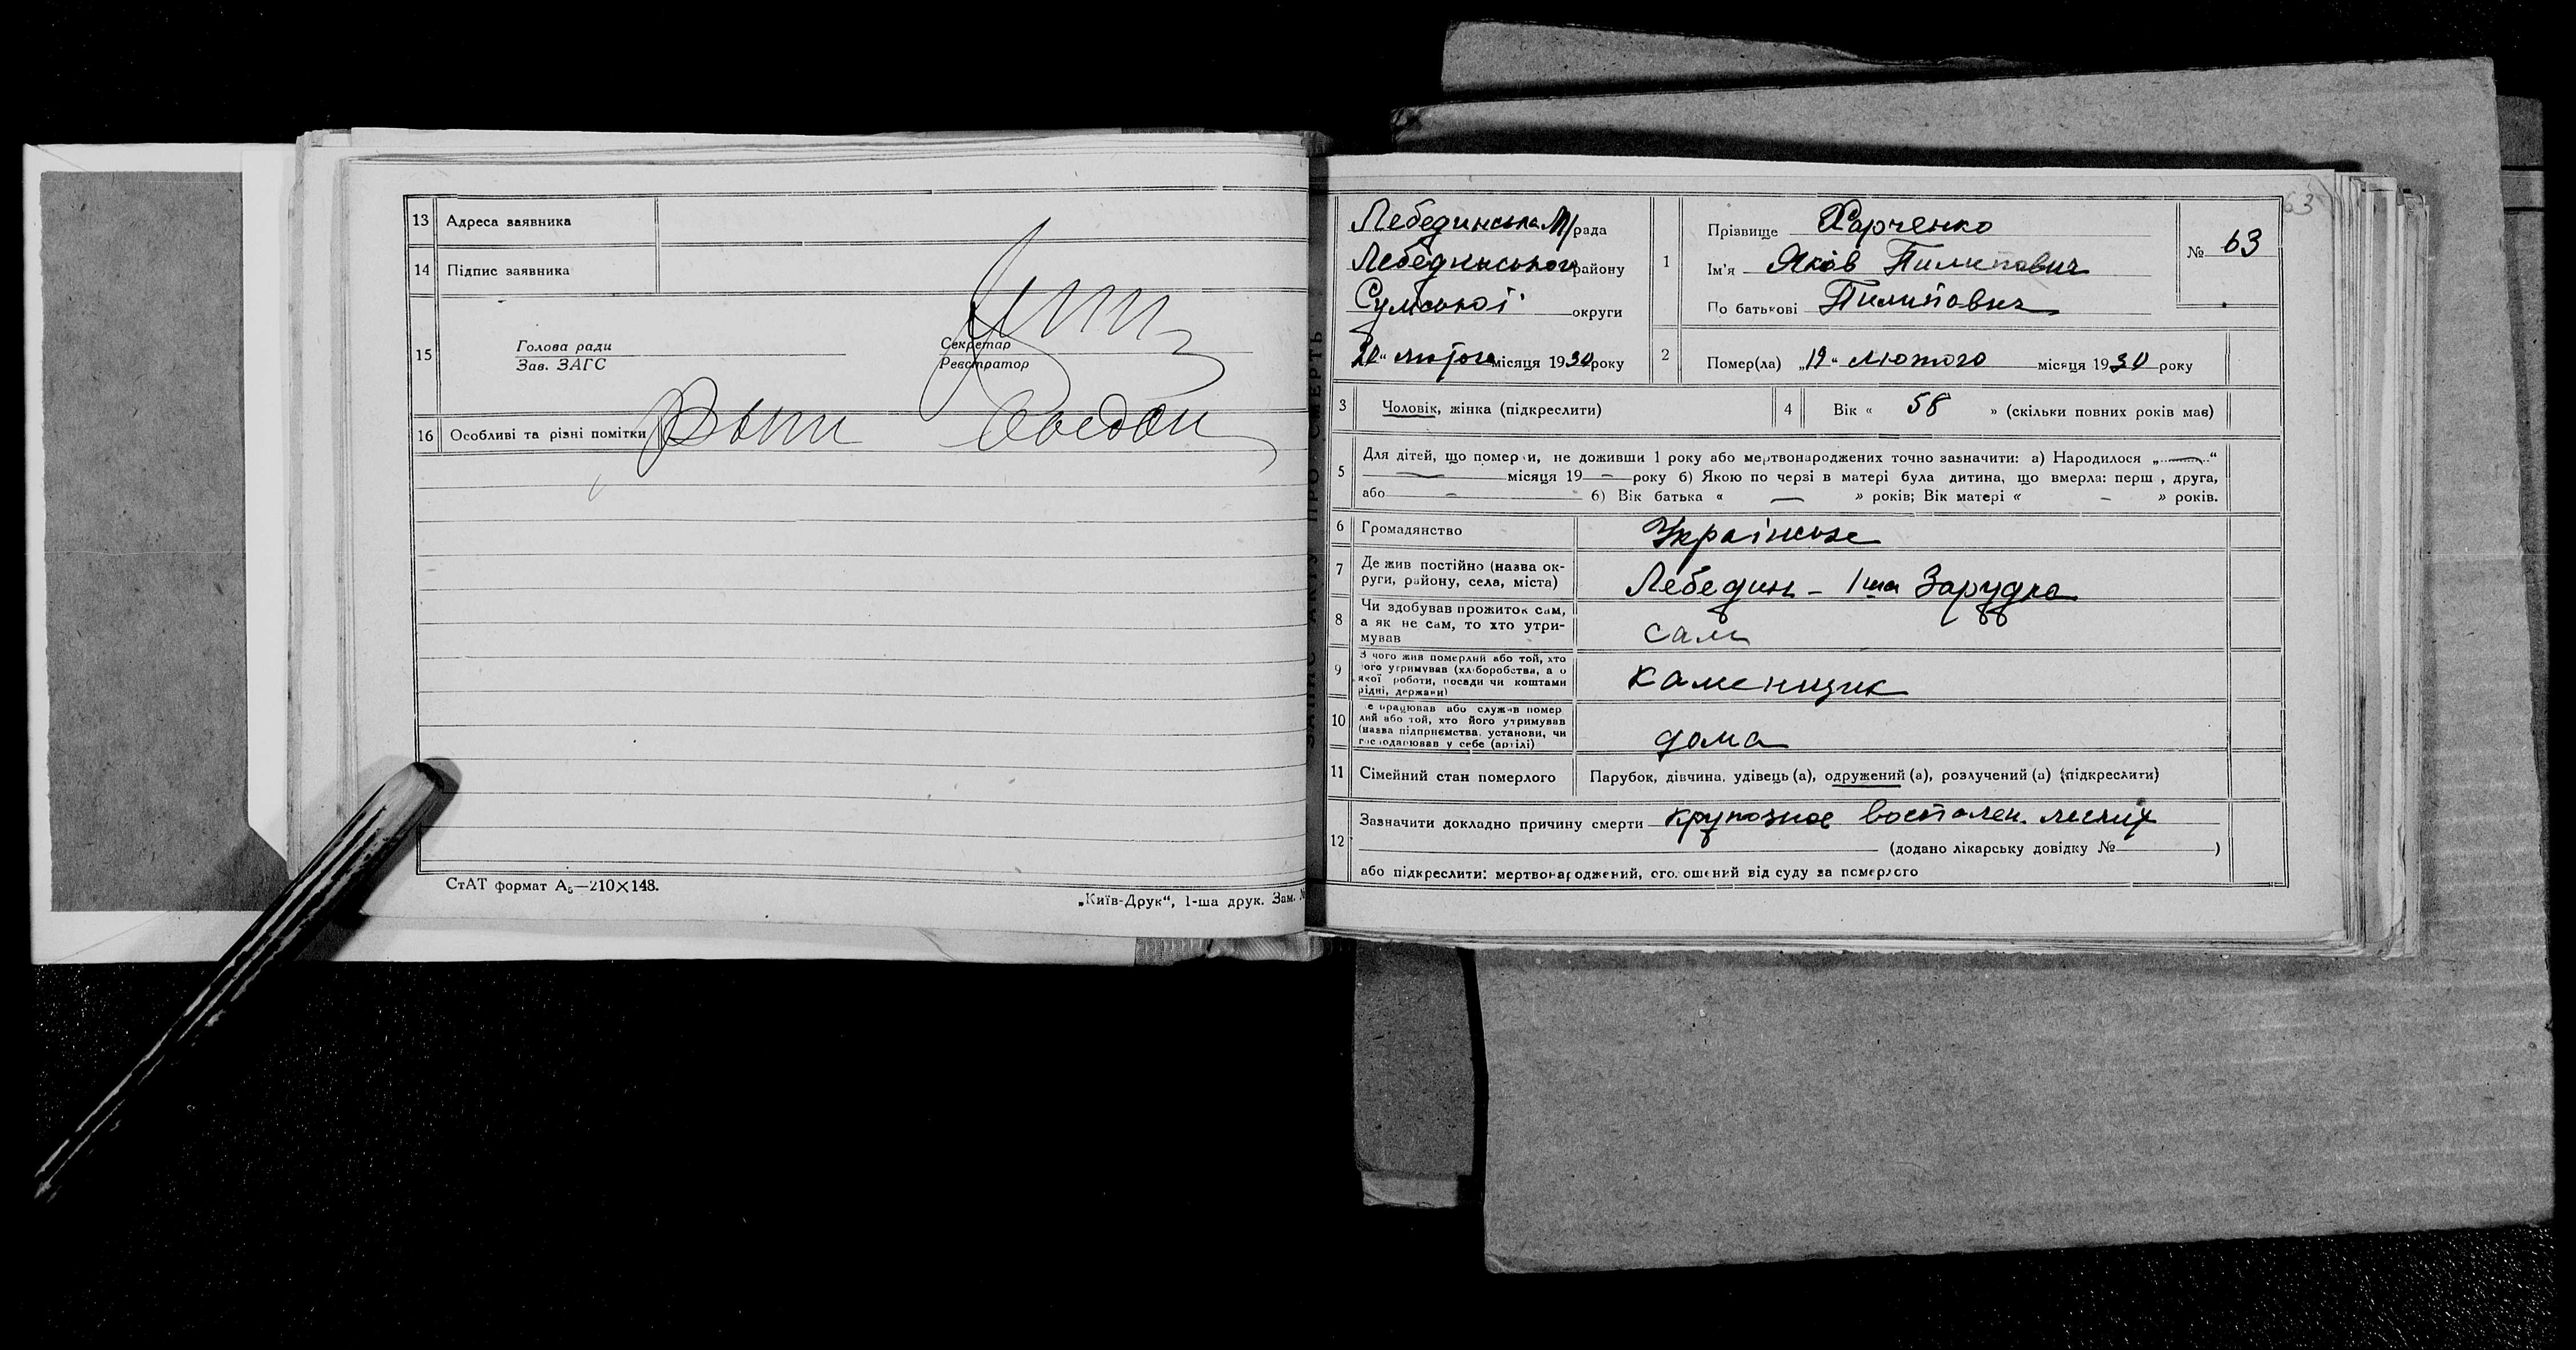 13 Адреса заявника
14 Підпис заявника
15 Голова ради
Зав. ЗАГС
Секретар
Реєстратор
16 Особливі та різні помітки
СтАТ формат А5—210×148.
„Київ-Друк“, 1-ша друк. Зам. №
ЗАПИС АКТУ ПРО СМЕРТЬ
63
Лебединська М/рада
Лебединського району
Сумської округи
20 „ лютого місяця 1930 року
1 Прізвище Харченко
Ім'я Яків Пилипович
По батькові Пилипович
№ 63
2 Помер(ла) „19 “ лютого місяця 1930 року
3 Чоловік, жінка (підкреслити)
4 Вік « 58 » (скільки повних років має)
5 Для дітей, що померли, не доживши 1 року або мертвонароджених точно зазначити: а) Народилося „ — “
— місяця 19 — року б) Якою по черзі в матері була дитина, що вмерла: перш , друга,
або — б) Вік батька « — » років; Вік матері « — » років.
6 Громадянство Українське
7 Де жив постійно (назва ок-
руги, району, села, міста) Лебедин – 1ша Зарудка
8 Чи здобував прожиток сам,
а як не сам, то хто утри-
мував сам
9 З чого жив померлий або той, хто
його утримував (хліборобства, а о
якої роботи, посади чи коштами
рідні, держави) каменщик
10 е працював або служив помер
лий або той, хто його утримував
(назва підприємства, установи, чи
господарював у себе (артілі) дома
11 Сімейний стан померлого Парубок, дівчина, удівець (а), одружений (а), розлучений (а) (підкреслити)
12 Зазначити докладно причину смерти крупозное воспален. легких
(додано лікарську довідку № )
або підкреслити: мертвонароджений, оголошений від суду за померлого